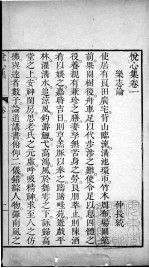 悅心集卷一
樂志論
仲長統
使居有良田廣宅背山臨流溝池環帀竹木周布場圃築
前果園樹後舟車足以代步涉之難使令足以息四體之
役養親有兼珍之膳妻孥無苦身之勞良朋萃止則陳酒
肴以娛之嘉時吉日則烹羔豚以奉之躊躇畦苑遊戲平
林濯清水追涼風釣游鯉弋高鴻風於舞雩之下詠歸高
堂之上安神閨房思老氏之元虛呼吸精和求至人之仿
佛與達者數子論道講書俯仰二儀錯綜人物彈南風之